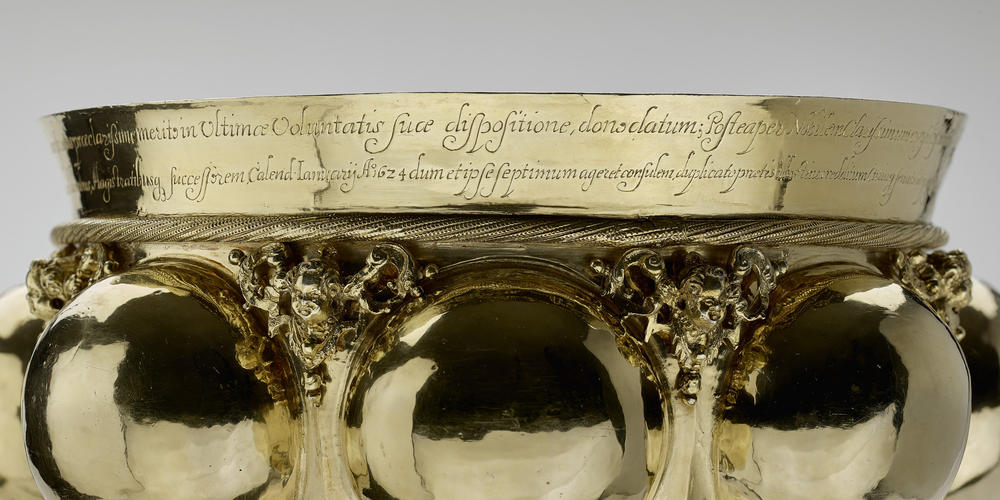 præclarissime merito in Ultimæ Voluntatis suæ dispositione, dono datum; Postea per Nobilem Clarissimumq
Magistratibusq successorem, Calend Ianuarij Aº 1624 dum et ipse septimum ageret consulem, duplicato pretio